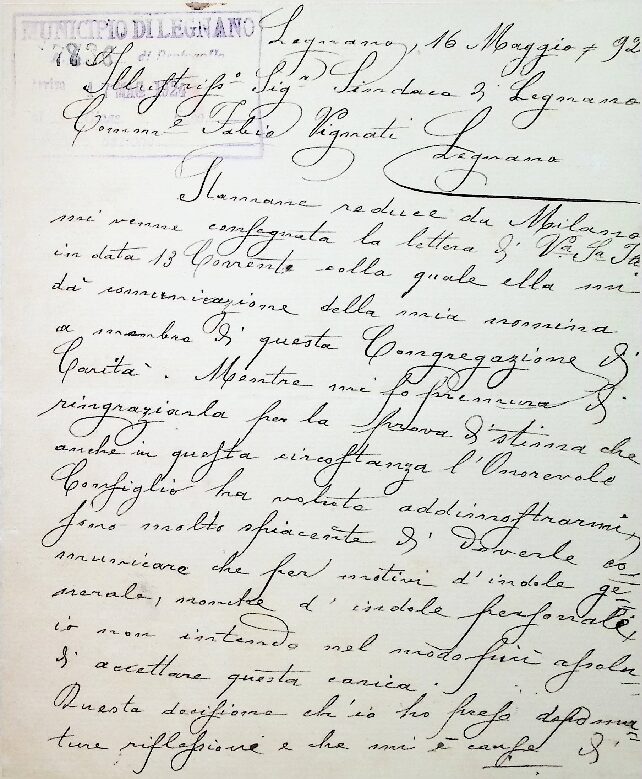 MUNICIPIO DI LEGNANO
7838
Legnano, 16 Maggio 92
Illustriss.º Sig.r Sindaco di Legnano
Comm.e Fabio Vignati
Legnano
Stamane reduce da Milano
mi venne consegnata la lettera di V.a S.a Ill.
in data 13 Corrente colla quale ella mi
dà comunicazione della mia nomina
a membro di questa Congregazione di
Carità. Mentre mi fo premura di
ringraziarla per la prova d'stima che
anche in questa circostanza l'Onorevole
Consiglio ha voluto addimostrarmi,
sono molto spiacente di doverle co=
municare che per motivi d'indole ge=
nerale, nonchè d'indole personale,
io non intendo nel modo più assolu-
di accettare questa carica.
Questa decisione ch'io ho preso dopo matu=
ture riflessioni e che mi è causa di